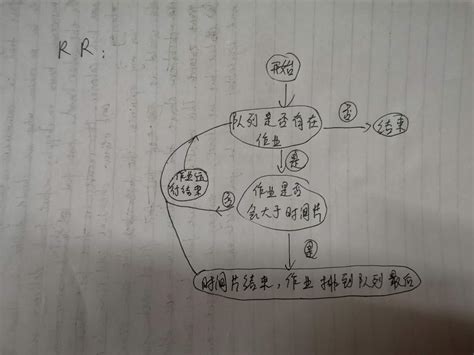 RR:
开始
队列是否存在
作业
否
结束
是
作业运
行结束
否
作业是否
会大于时间片
是
时间片结束,作业排到队列最后